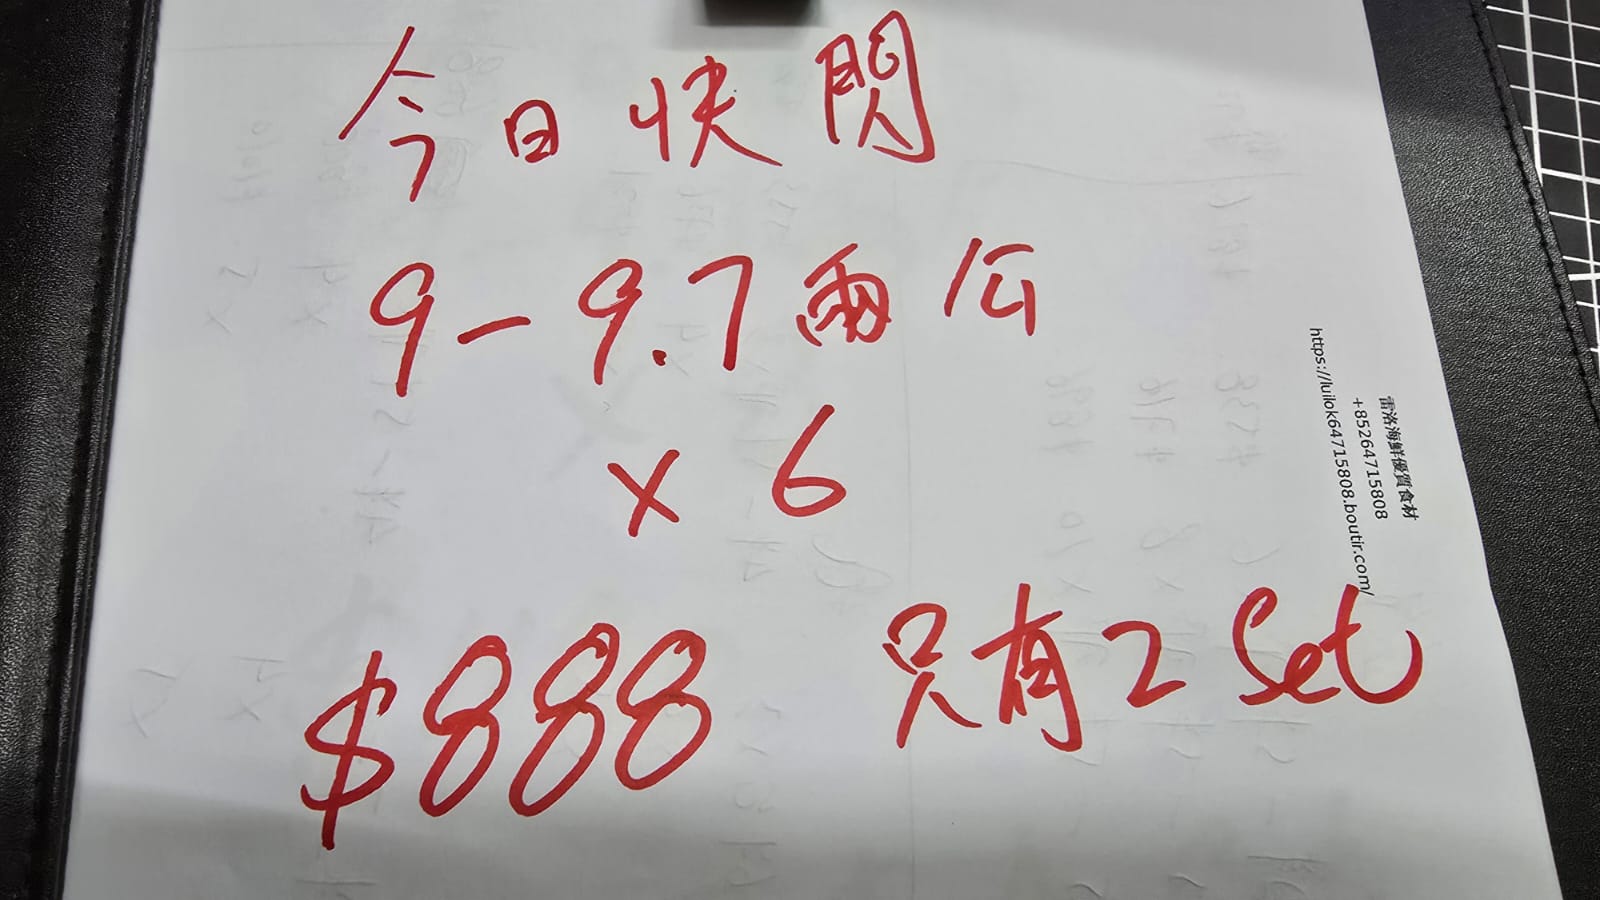 今日快閃
9-9.7兩公
x 6
$888 只有2 Set
雷洛海鮮優質食材
+85264715808
https://luilok64715808.boutir.com/